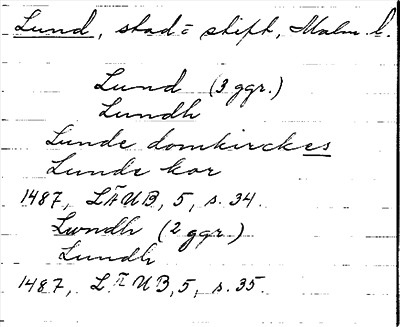 Lund, stad = stift, Malm. l.
Lund (3 ggr.)
Lundh
Lunde domkirckes
Lunde kor
1487, LÄUB, 5, s. 34.
Lwndh (2 ggr.)
Lundh
1487, LÄUB, 5, s. 35.